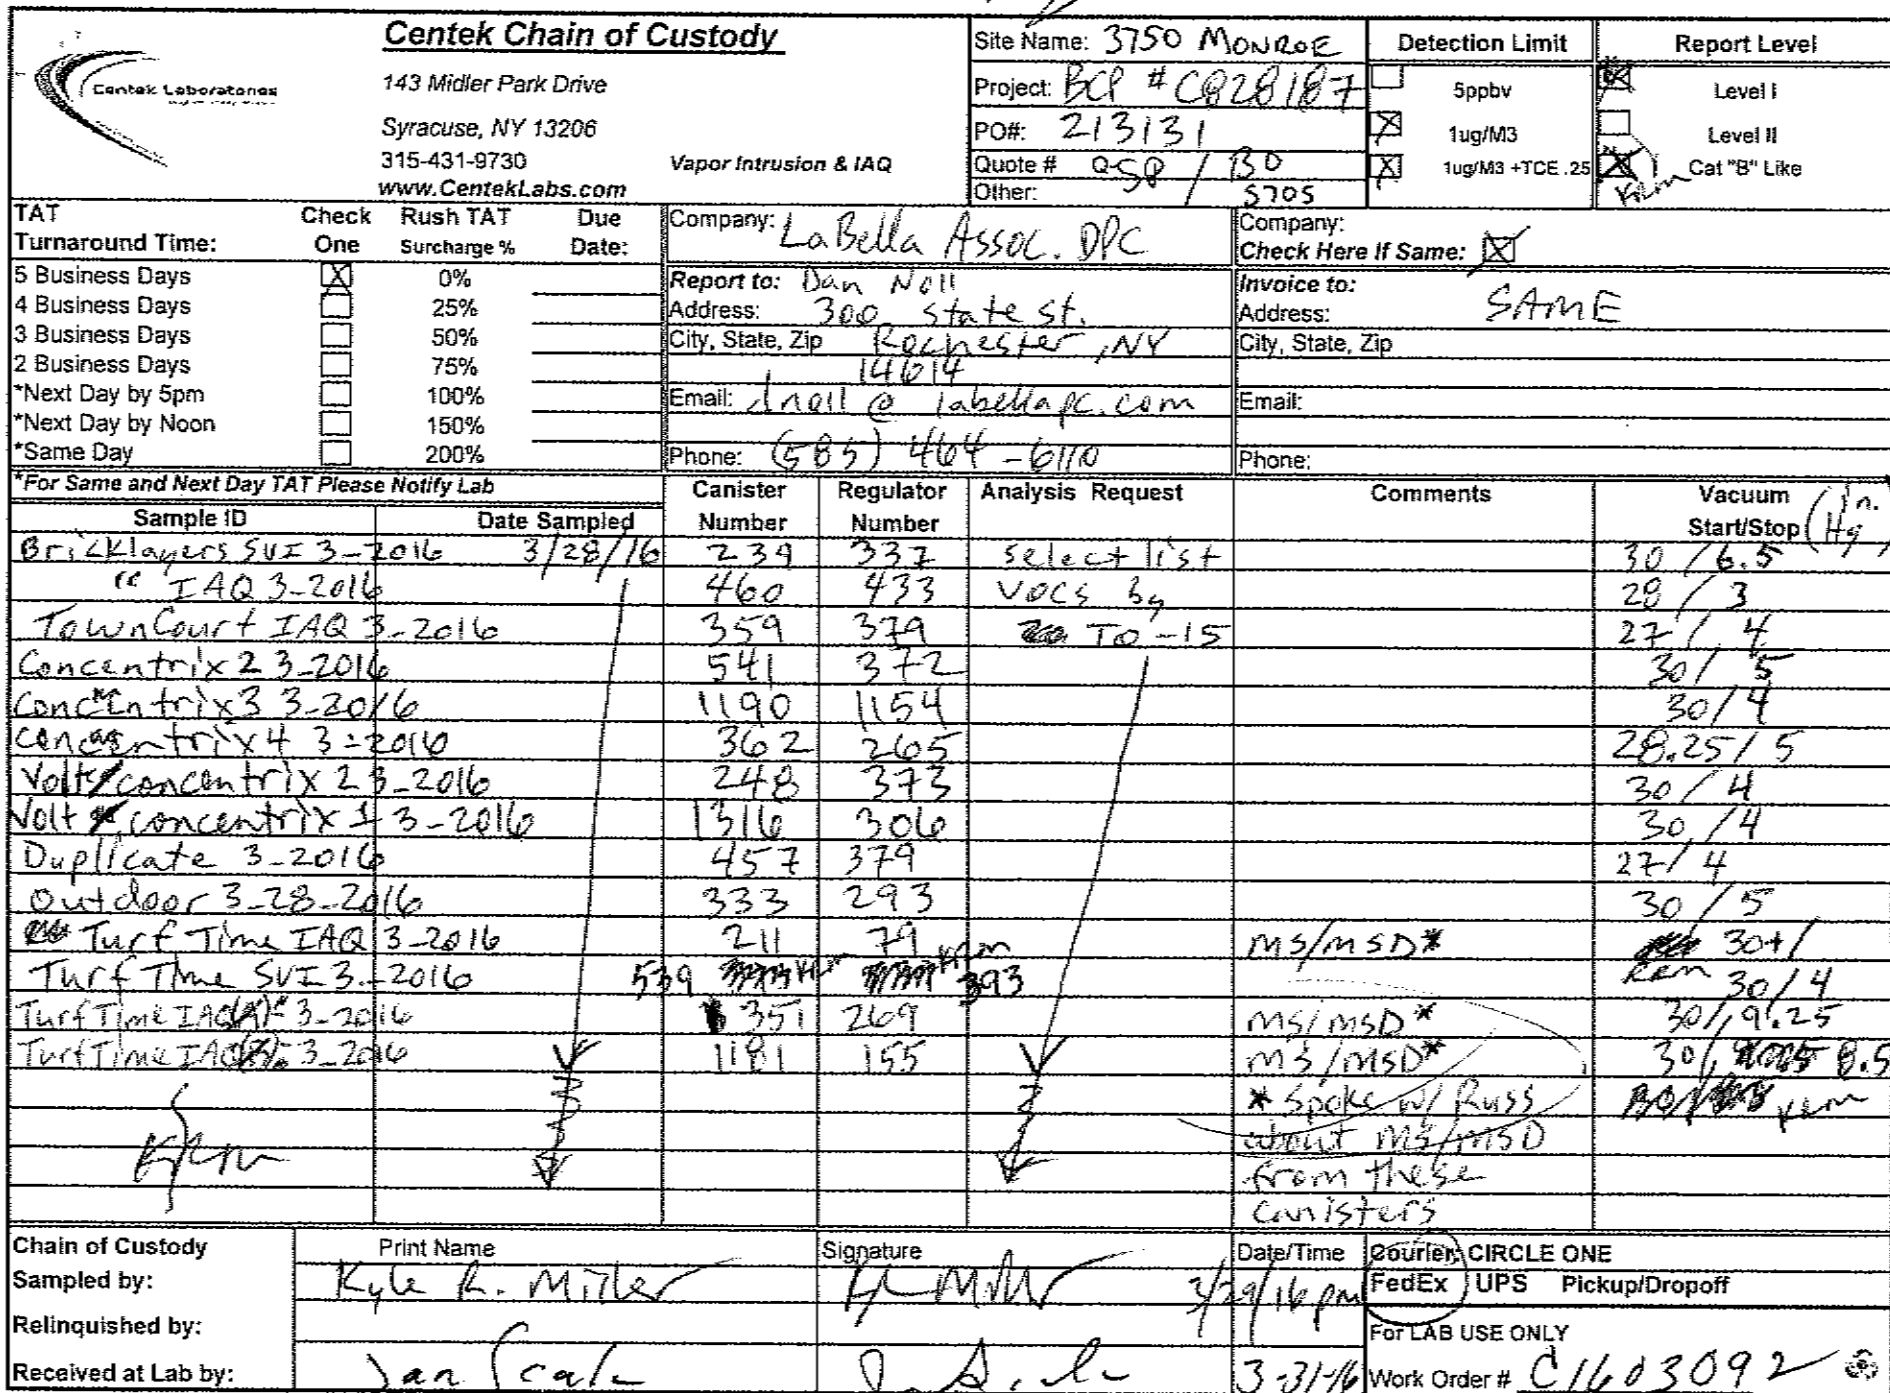 Centek Chain of Custody
Centek Laboratories
143 Midler Park Drive
Syracuse, NY 13206
315-431-9730
www.CentekLabs.com
Vapor Intrusion & IAQ
Site Name: 3750 MONROE
Project: BCP # C828187
PO#: 213131
Quote # Q-58 / 130
Other: 5705
Detection Limit
5ppbv
1ug/M3
1ug/M3 +TCE .25
Report Level
Level I
Level II
Cat "B" Like
krm
TAT Check Rush TAT Due
Turnaround Time: One Surcharge % Date:
5 Business Days X 0%
4 Business Days 25%
3 Business Days 50%
2 Business Days 75%
*Next Day by 5pm 100%
*Next Day by Noon 150%
*Same Day 200%
*For Same and Next Day TAT Please Notify Lab
Company: LaBella Assoc. DPC
Report to: Dan Noll
Address: 300 State St.
City, State, Zip Rochester, NY
14614
Email: dnoll @ labellapc.com
Phone: (585) 464-6110
Company:
Check Here If Same: X
Invoice to: SAME
Address:
City, State, Zip
Email:
Phone:
Sample ID Date Sampled Canister Number Regulator Number Analysis Request Comments Vacuum Start/Stop (in. Hg)
Bricklayers SVI 3-2016 3/28/16 239 337 select list 30 / 6.5
" IAQ 3-2016 460 433 VOCs by 28 / 3
TownCourt IAQ 3-2016 359 379 TO-15 27 / 4
Concentrix 2 3-2016 541 372 30 / 5
Concentrix 3 3-2016 1190 1154 30/4
concentrix 4 3-2016 362 265 28.25 / 5
Volt/concentrix 2 3-2016 248 373 30 / 4
Volt concentrix 1 3-2016 1316 306 30 / 4
Duplicate 3-2016 457 379 27/ 4
Outdoor 3-28-2016 333 293 30 / 5
Turf Time IAQ 3-2016 211 79 MS/MSD* 30+/
Turf Time SVI 3-2016 539 krm krm 393 krm 30/4
Turf Time IAQ(A)* 3-2016 351 269 MS/MSD* 30/9.25
Turf Time IAQ 3-2016 1181 155 MS/MSD* 30/ 8.5
* Spoke w/ Russ krm
about MS/MSD
from these
canisters
krm
Chain of Custody Print Name Signature Date/Time Courier: CIRCLE ONE
Sampled by: Kyle R. Miller 3/29/16 pm FedEx UPS Pickup/Dropoff
Relinquished by:
For LAB USE ONLY
Received at Lab by: 3-31-16 Work Order # C1603092